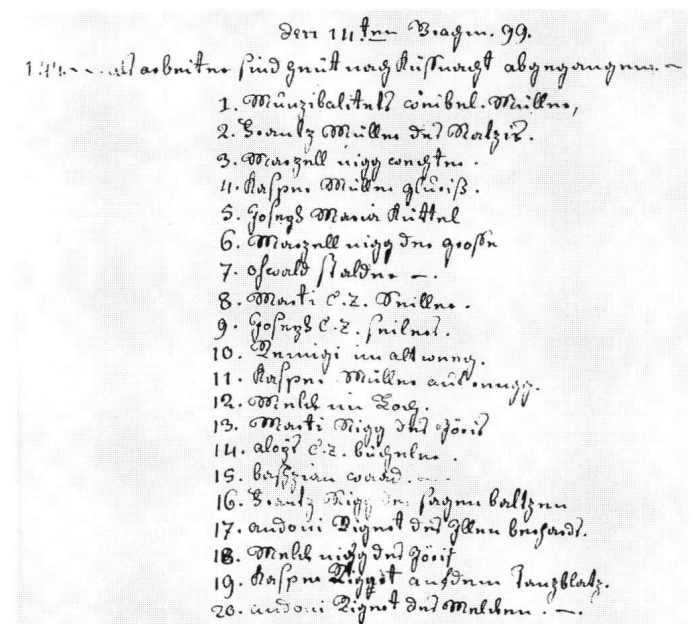 den 14ten Brachm. 99.
als arbeiter sind heüt nach Küssnacht abgegangen. –
1. Munzibalitets weibel. Müller,
2. Frantz Müller des Natzis.
3. Marzell nigg wechter.
4. Kasper Müller
5. Joseph Maria Küttel
6. Marzell nigg der grosse
7. oswald stalder –.
8. Marti C.Z. Seiller.
9. Joseph C.Z. seilers.
10. Remigi im altweeg.
11. Kasper Müller auf rugg.
12. Melch im Loch.
13. Marti Nigg des Jöris
14. aloys C.Z. büeheler.
15. baschzian waad. –
16. Frantz Nigg der sagen baltzen
17. andoni Rigert des
18. Melch nigg des Jöris
19. Kasper Riggert auf dem Tanzblatz.
20. andoni Rigert des Melchen. –.